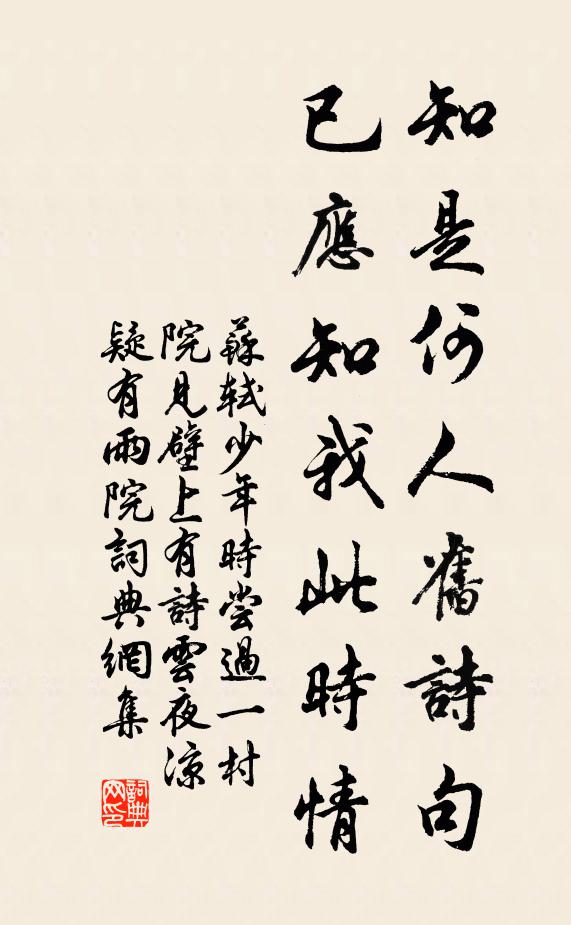 知是何人舊詩句
已應知我此時情
蘇軾少年時尝過一村
院見壁上有詩雲夜涼
疑有雨院詞典網集
詞典网印